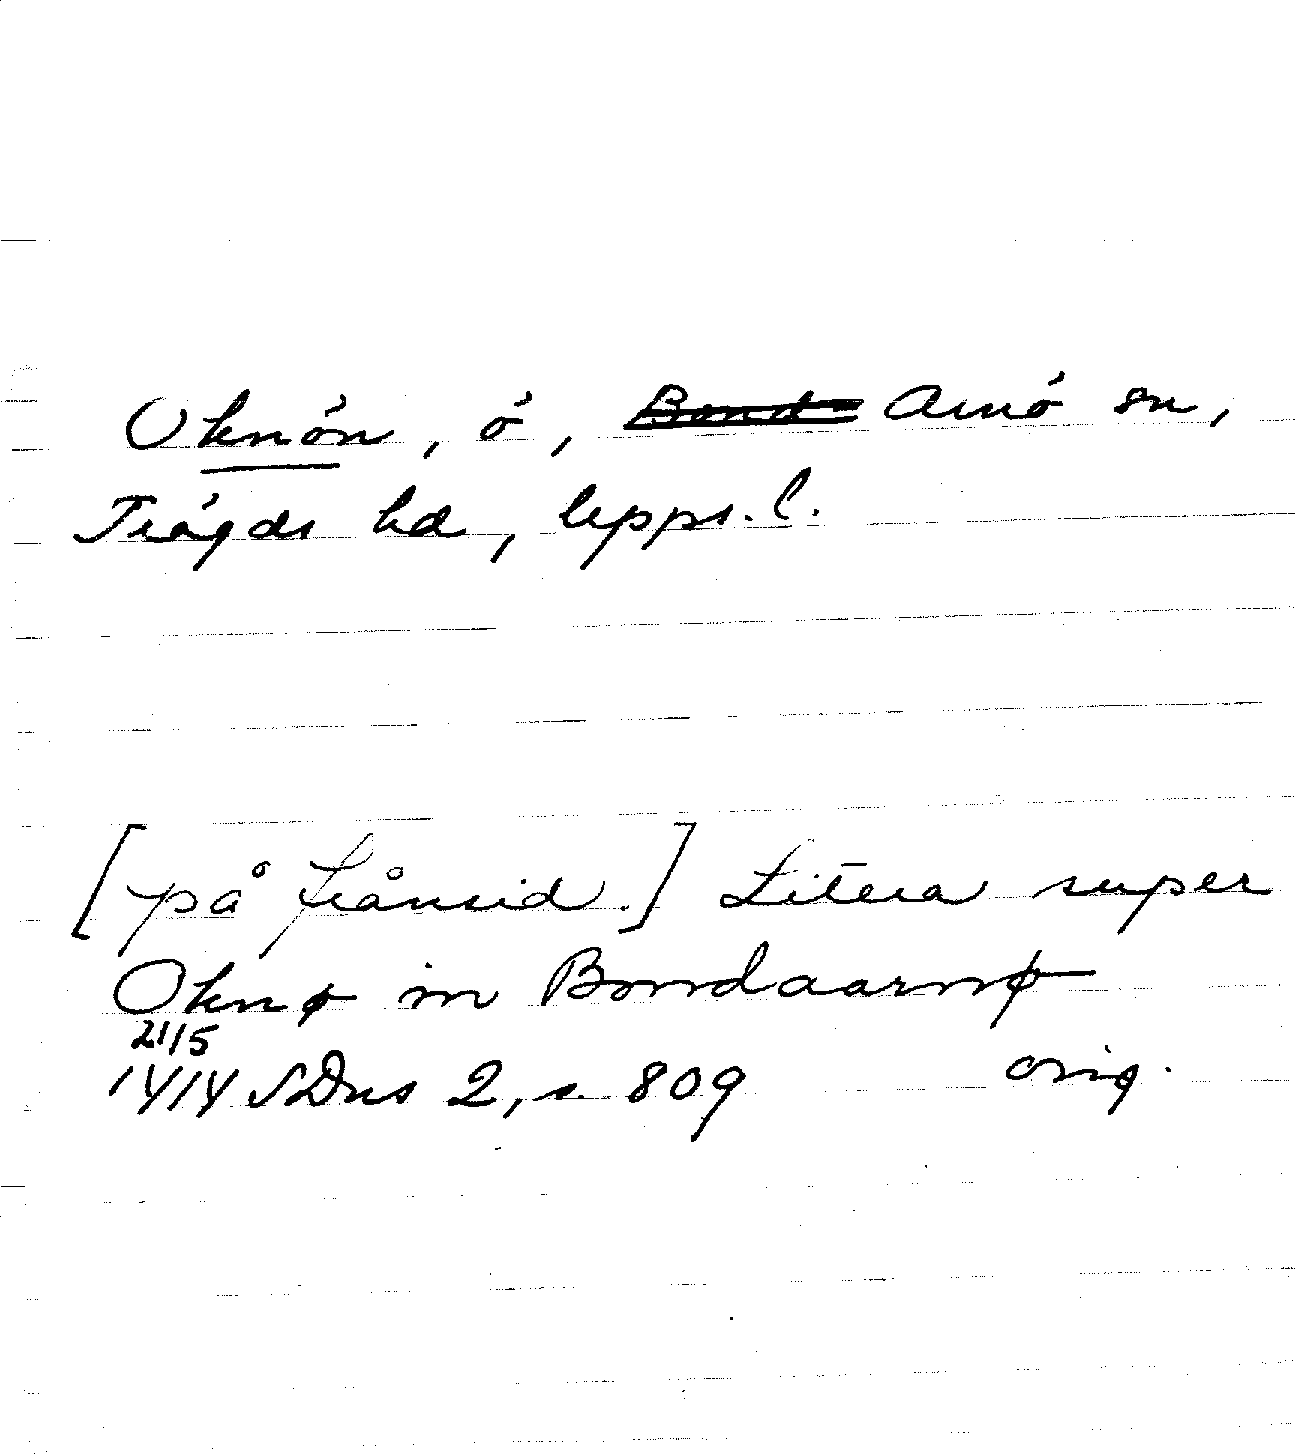 Oknön, ö, Bond- Arnö sn,
Trögds hd, Upps. l.
[på frånsid.] Litera super
Oknø in Bondaarnø
21/5
1414 SDns 2, s. 809 orig.